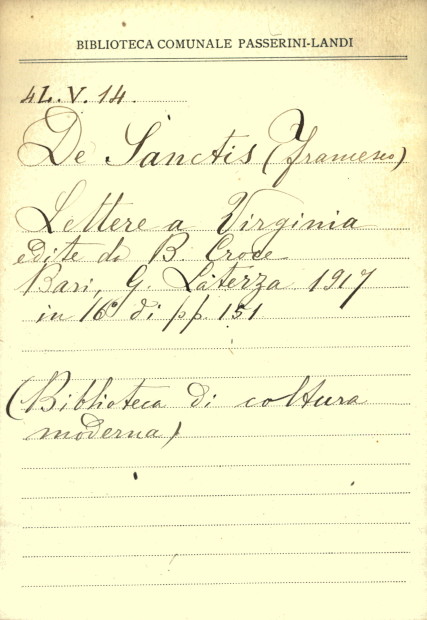 BIBLIOTECA COMUNALE PASSERINI-LANDI
4L.V.14.
De Sanctis (Francesco)
Lettere a Virginia
edite da B. Croce
Bari, G. Laterza 1917
in 16° di pp. 151
(Biblioteca di coltura
moderna)